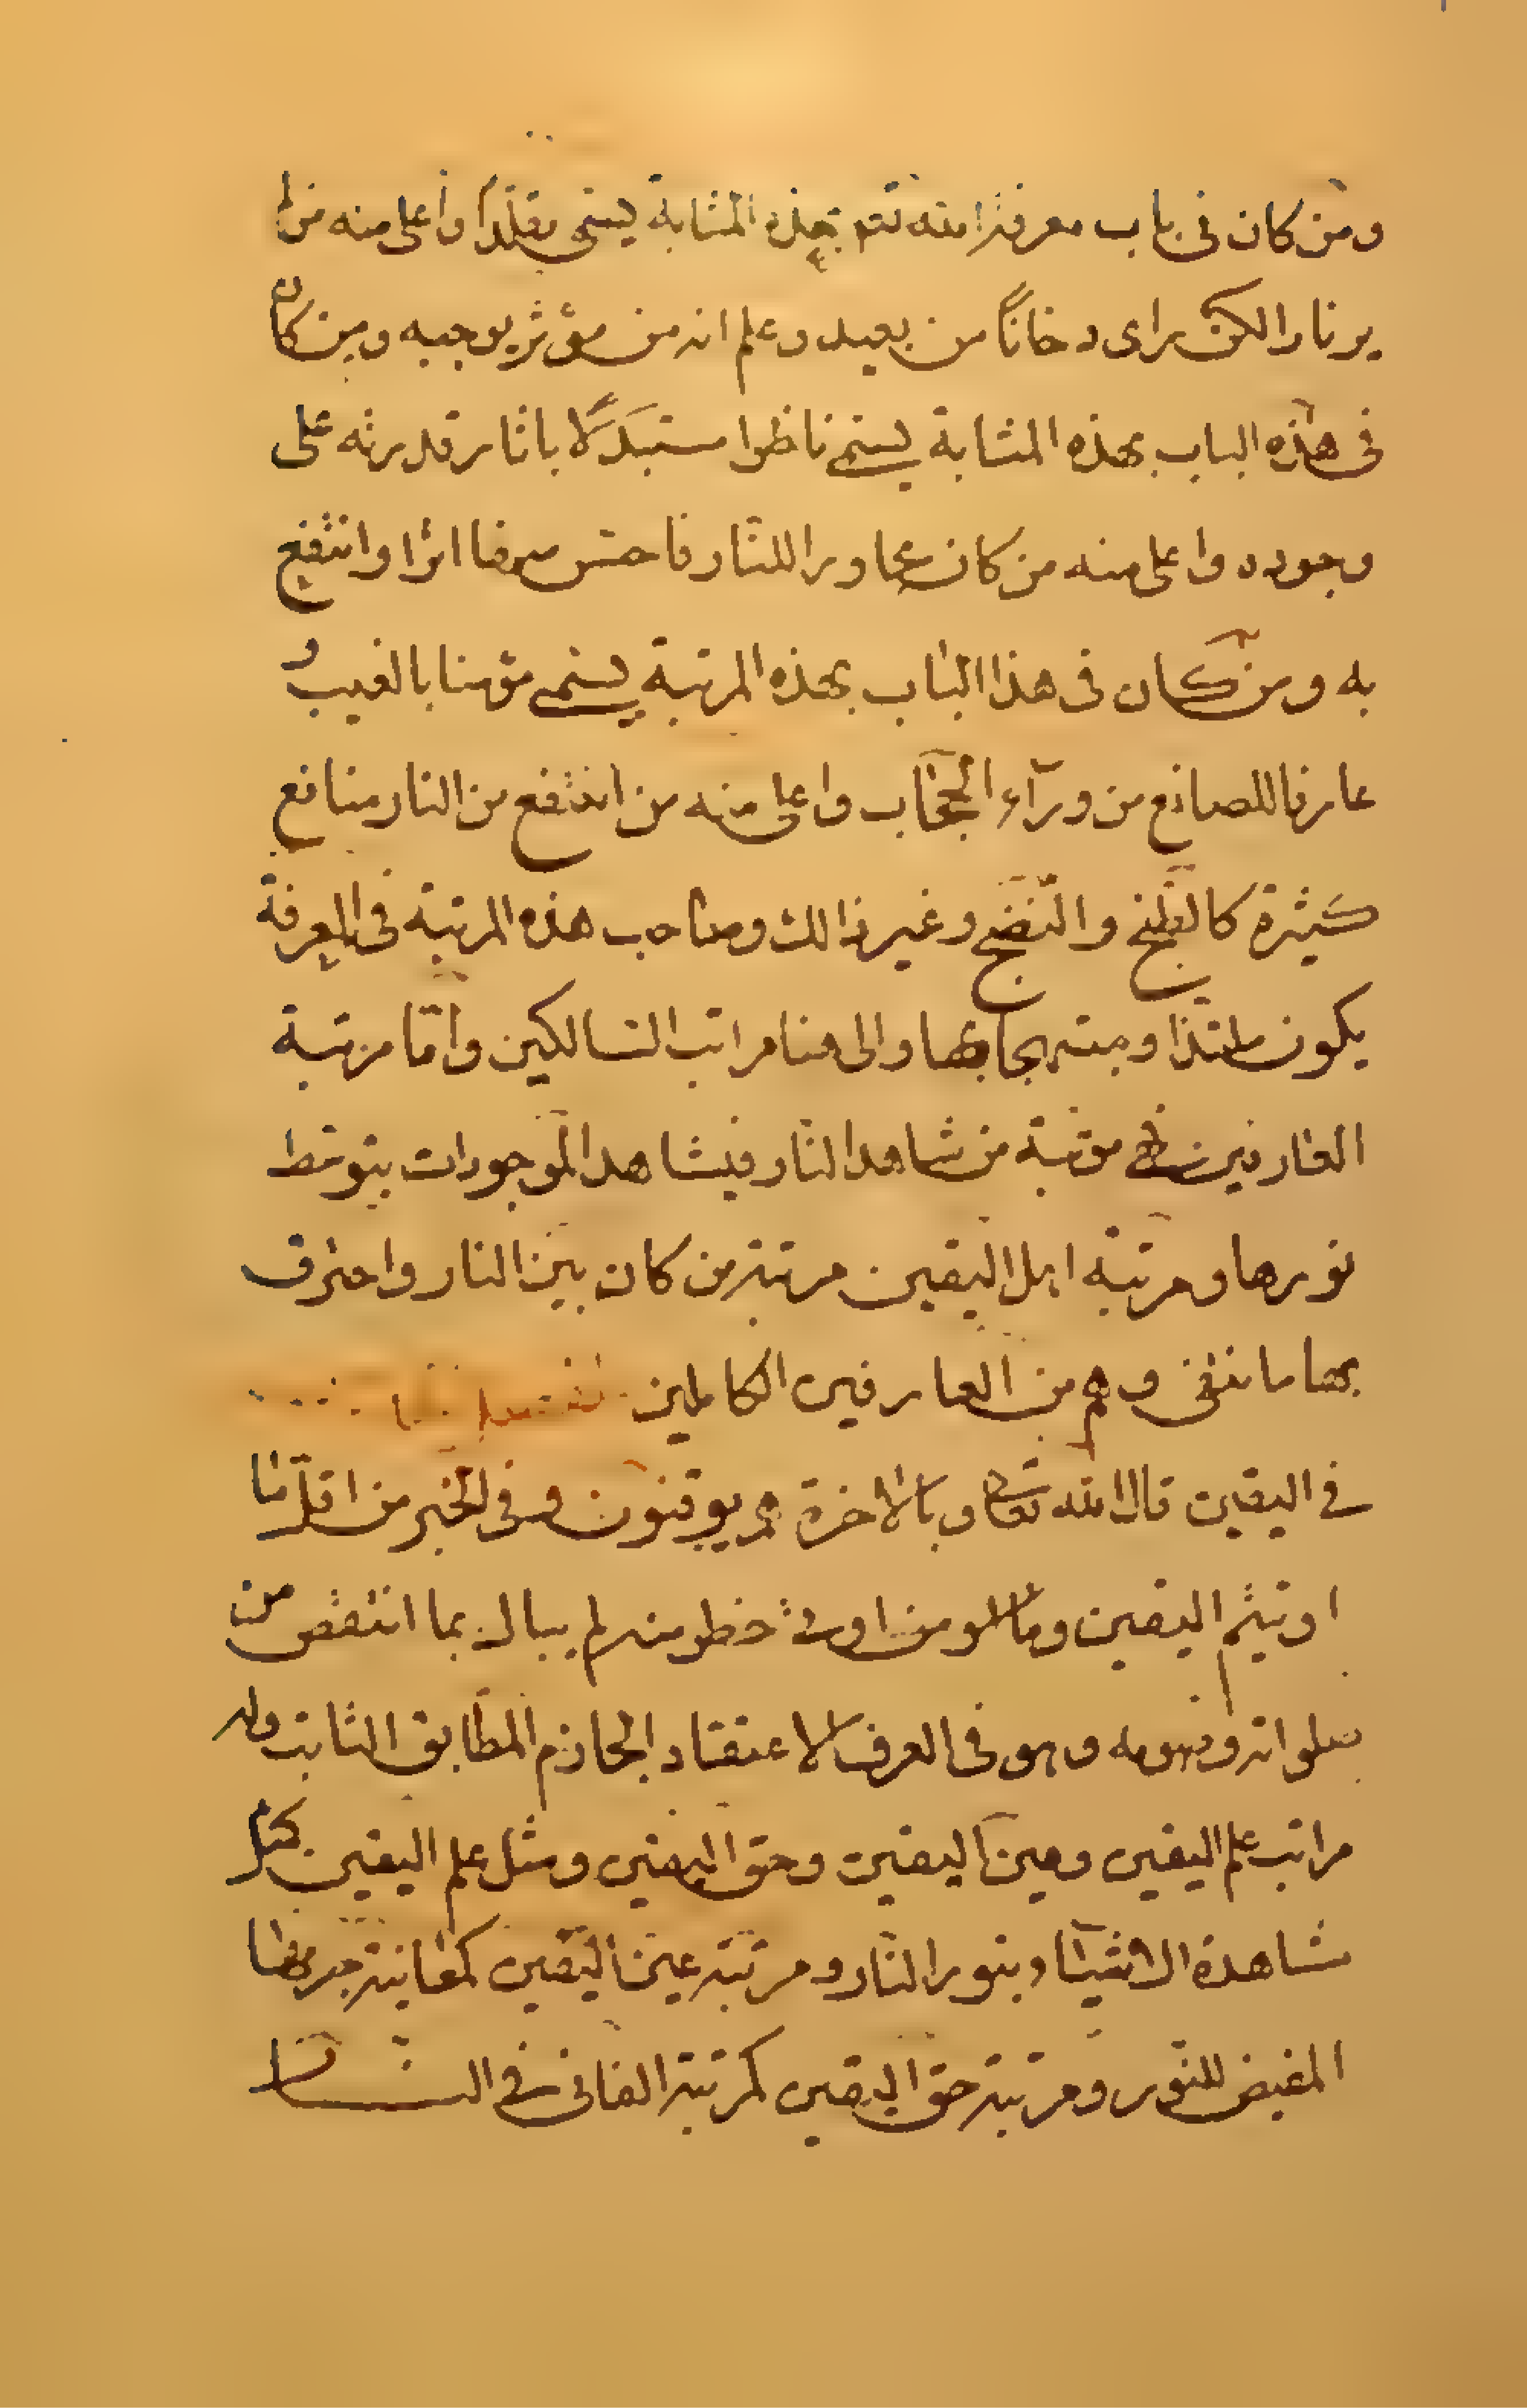 ومن كان فى باب معرفة الله تعم بهذه المثابة يسمى مقلدا واعلى منه من لم
ير نارا لكن راى دخاناً من بعيد وعلم انه من مؤثر يوجبه ومن كان
فى هذه الباب بهذه المثابة يسمى ناظرا مستبدلا باثار قدرته على
وجوده واعلى منه من كان مجاورا للنار فاحس بها اثرا وانتفع
به ومن كان فى هذا الباب بهذه المرتبة يسمى مؤمنا بالغيب و
عارفا للصانع من ورآء الحجاب واعلى منه من انتفع من النار منافع
كثيرة كالطبخ والنضج وغير ذالك وصاحب هذه المرتبة فى المعرفة
يكون ملتذا ومبتهجا بها والى هنا مراتب السالكين واما مرتبة
العارفين فهى مرتبة من شاهد النار فيشاهد الموجودات بتوسط
نورها ومرتبة اهل اليقين مرتبة من كان بين النار واحترق
بها ما نفى وهم من العارفين الكاملين
فى اليقين قال الله تعالى وبالاخرة هم يوقنون وفى الخبر من اقل ما
اوتيتم اليقين ومن اوتى حظه منه لم يبال بما انتقص من
صلواته وصومه وهو فى العرف الاعتقاد الجازم المطابق الثابت وله
مراتب علم اليقين وعين اليقين وحق اليقين ومثل علم اليقين كمثل
مشاهدة الاشياء بنور النار ومرتبة عين اليقين كمعاينة جرمها
المفيض للنور ومرتبة حق اليقين كمرتبة الفانى فى النار